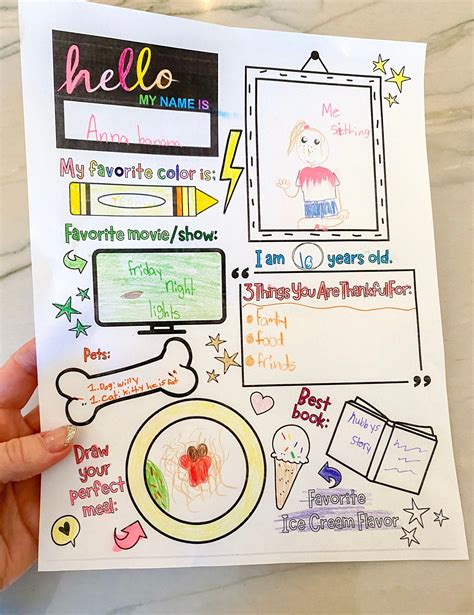 hello
MY NAME IS
Anna banana
Me
sitting
My favorite color is:
Favorite movie/show:
friday
night
lights
I am 16 years old.
3 Things You Are Thankful For:
family
food
frinds
Pets:
1. Dog: willy
1. Cat: kitty he is fat
Best
book:
hubbys
Story
Draw
your
perfect
meal:
Favorite
Ice Cream Flavor